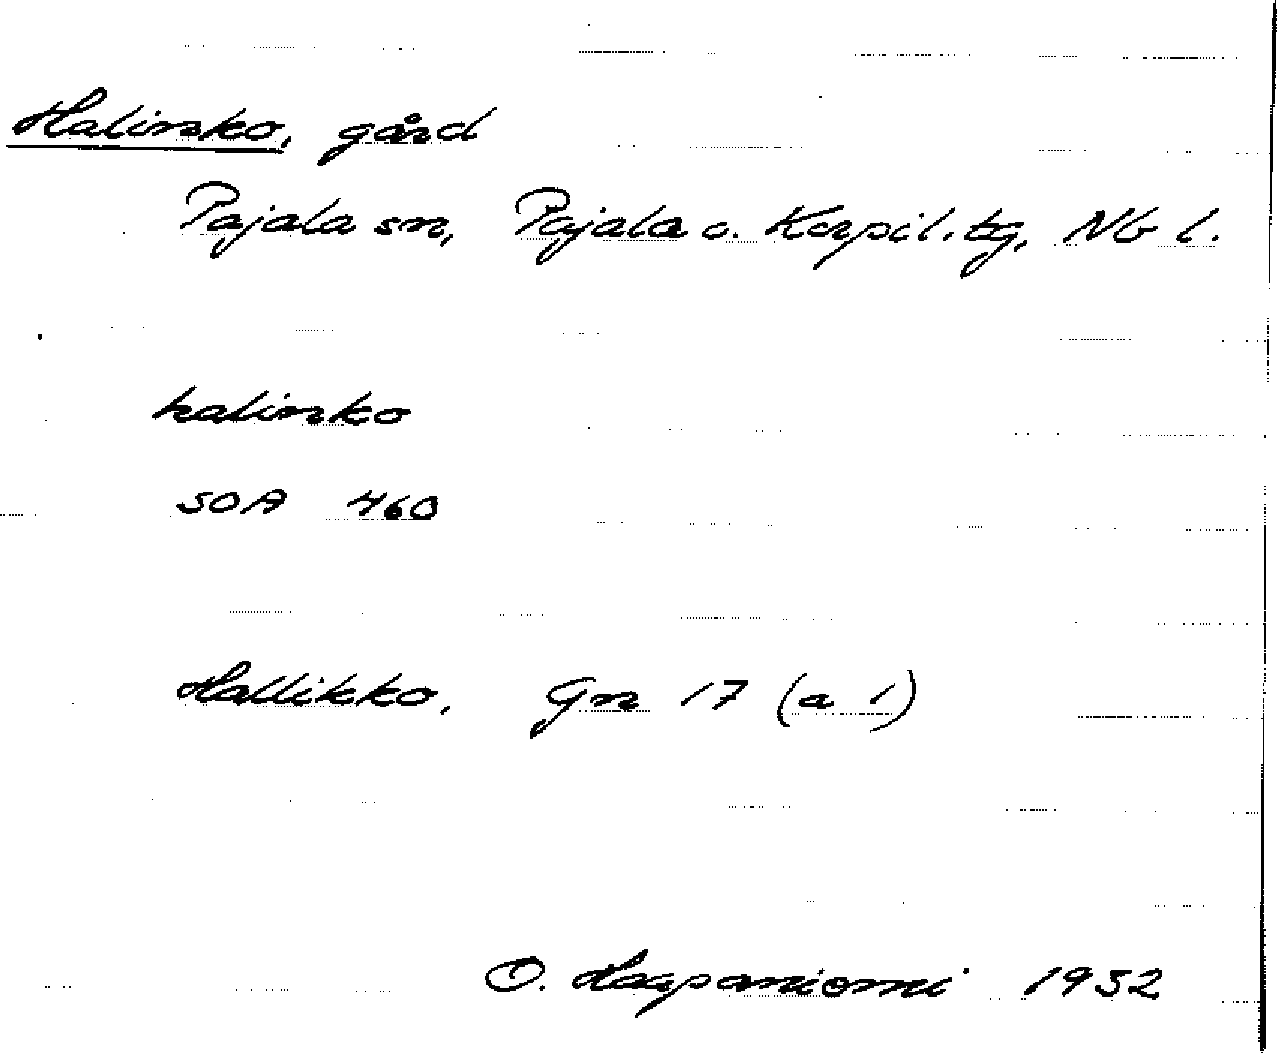 Halinko, gård
Pajala sn, Pajala o. Korpil. tg, Nb l.
halinko
SOA 460
Hallikko, Gn 17 (a 1)
O. Haapaniemi 1932